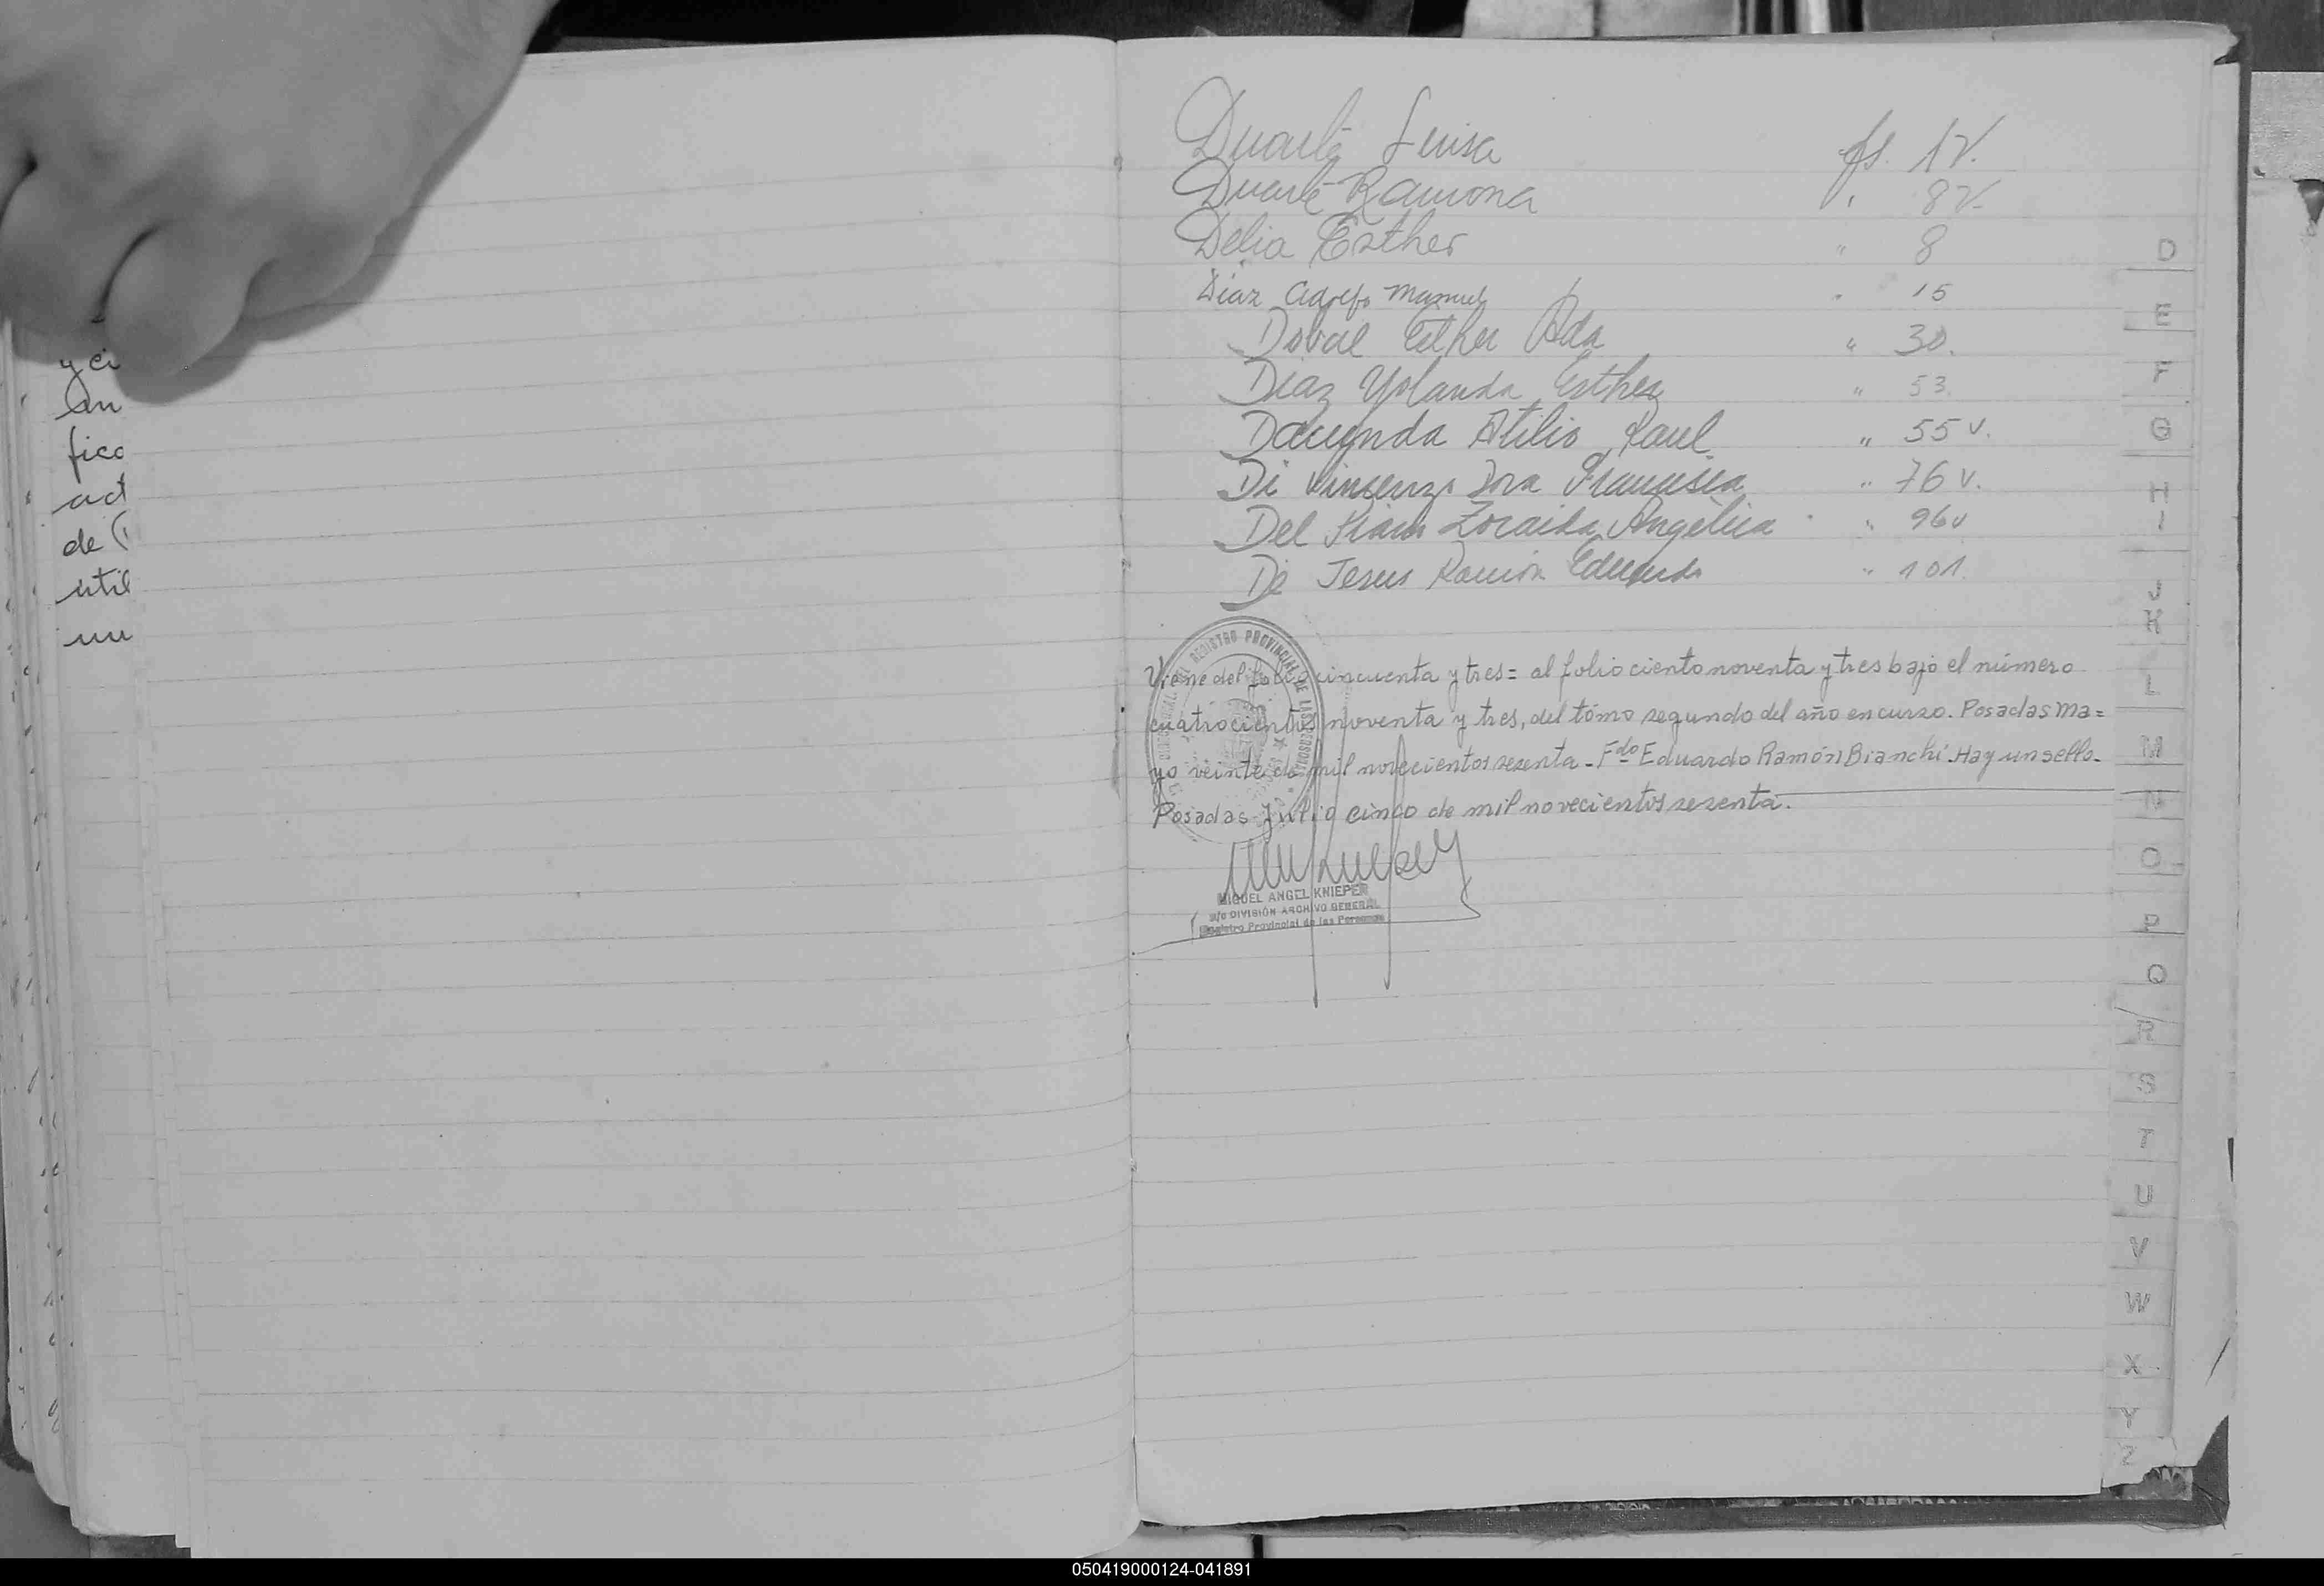 y ci
fico
act
de (
útil
Duarte Luisa fs. 1v.
Duarte Ramona " 8v.
Delia Esther " 8
Diaz Adolfo Manuel " 15
Doval Esther Ada " 30.
Diaz Yolanda Esther " 53.
Dacunda Atilio Raul " 55 v.
Di Vinsenzo Dora Francisca " 76 v.
Del Zoraida Angélica " 96v
De Jesus Ramón Eduardo " 101.
Viene del folio cincuenta y tres= al folio ciento noventa y tres bajo el número
cuatrocientos noventa y tres, del tómo segundo del año en curso. Posadas ma=
yo veinte de mil novecientos sesenta - Fdo Eduardo Ramón Bianchi. Hay un sello.-
Posadas Julio cinco de mil novecientos sesenta.
REGISTRO PROVINCIAL DE LAS PERSONAS
MIGUEL ANGEL KNIEPER
A/C DIVISIÓN ARCHIVO GENERAL
Registro Provincial de las Personas
D
E
F
G
H
I
J
K
L
M
N
O
P
Q
R
S
T
U
V
W
X
Y
Z
050419000124-041891